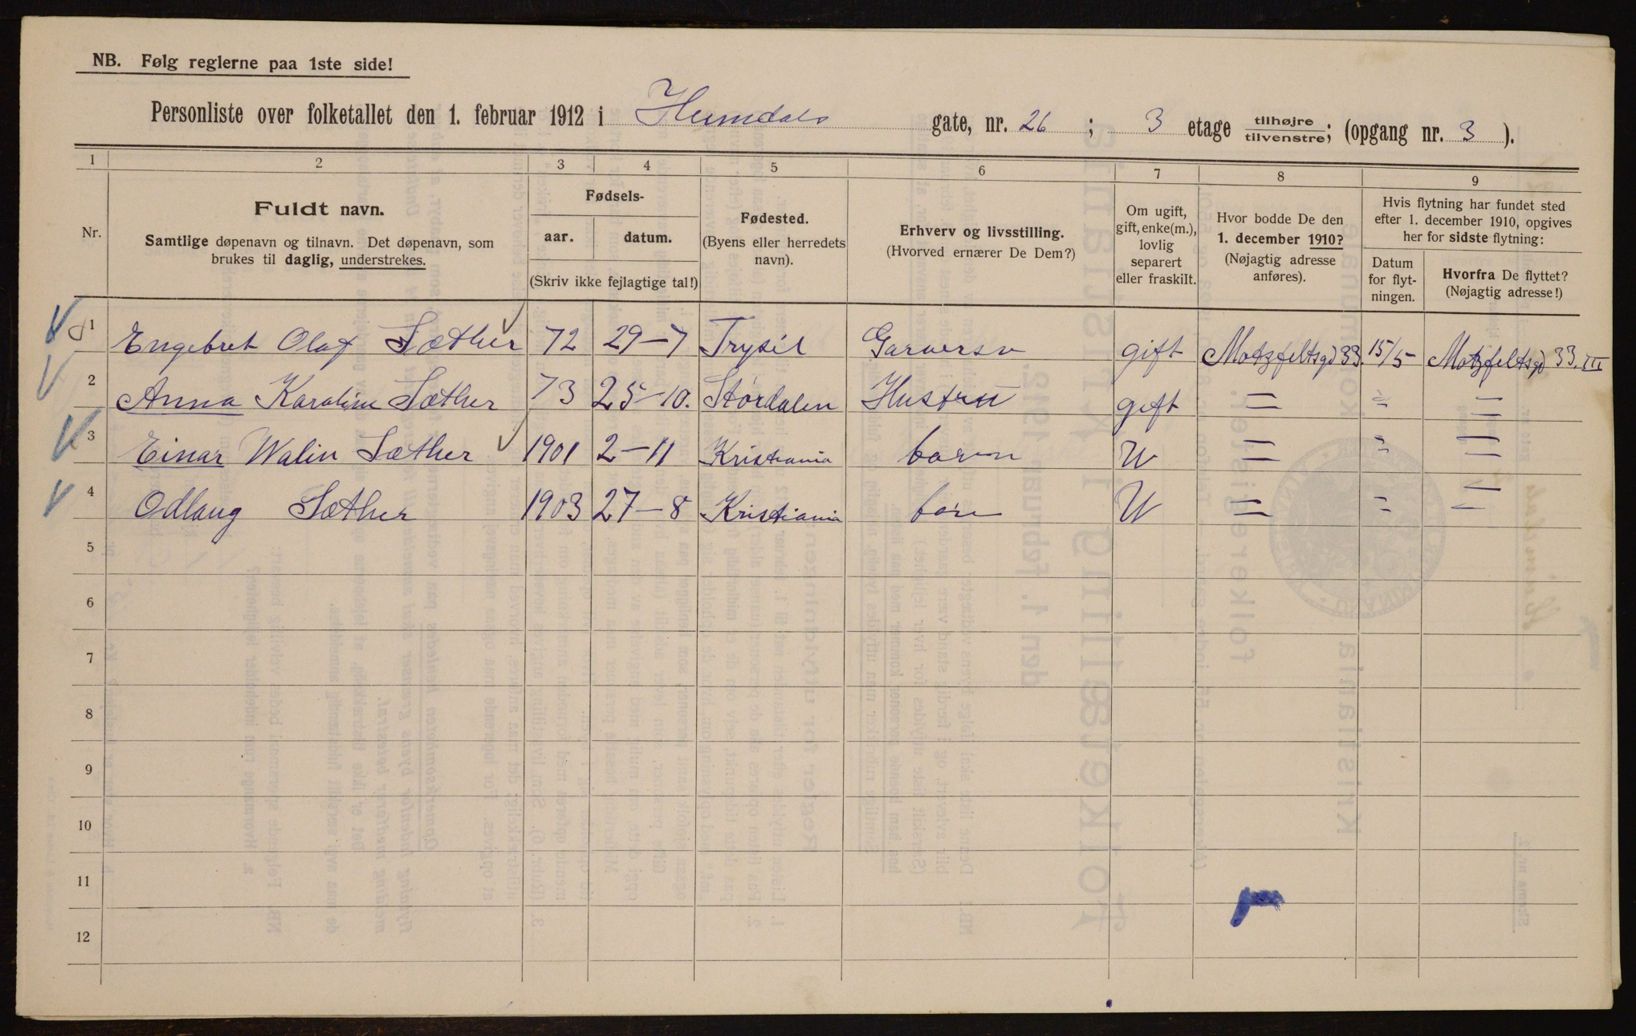 NB. Følg reglerne paa 1ste side!
Personliste over folketallet den 1. februar 1912 i Heimdals gate, nr. 26 ; 3 etage tilhøjre tilvenstre; (opgang nr. 3 ).
1 2 3 4 5 6 7 8 9
Nr.
Fuldt navn.
Samtlige døpenavn og tilnavn. Det døpenavn, som
brukes til daglig, understrekes.
Fødsels-
aar. datum.
(Skriv ikke fejlagtige tal!)
Fødested.
(Byens eller herredets
navn).
Erhverv og livsstilling.
(Hvorved ernærer De Dem?)
Om ugift,
gift, enke(m.),
lovlig
separert
eller fraskilt.
Hvor bodde De den
1. december 1910?
(Nøjagtig adresse
anføres).
Hvis flytning har fundet sted
efter 1. december 1910, opgives
her for sidste flytning:
Datum
for flyt-
ningen.
Hvorfra De flyttet?
(Nøjagtig adresse!)
1 Engebret Olaf Sæther 72 29-7 Trysil Garversv gift Motzfeltsgd 33. 15/5 Motzfeltsgd 33. III
2 Anna Karoline Sæther 73 25-10. Størdalen Hustru gift = = =
3 Einar Walin Sæther 1901 2-11 Kristiania barn U = = =
4 Odlaug Sæther 1903 27-8 Kristiania barn U = = =
5
6
7
8
9
10
11
12